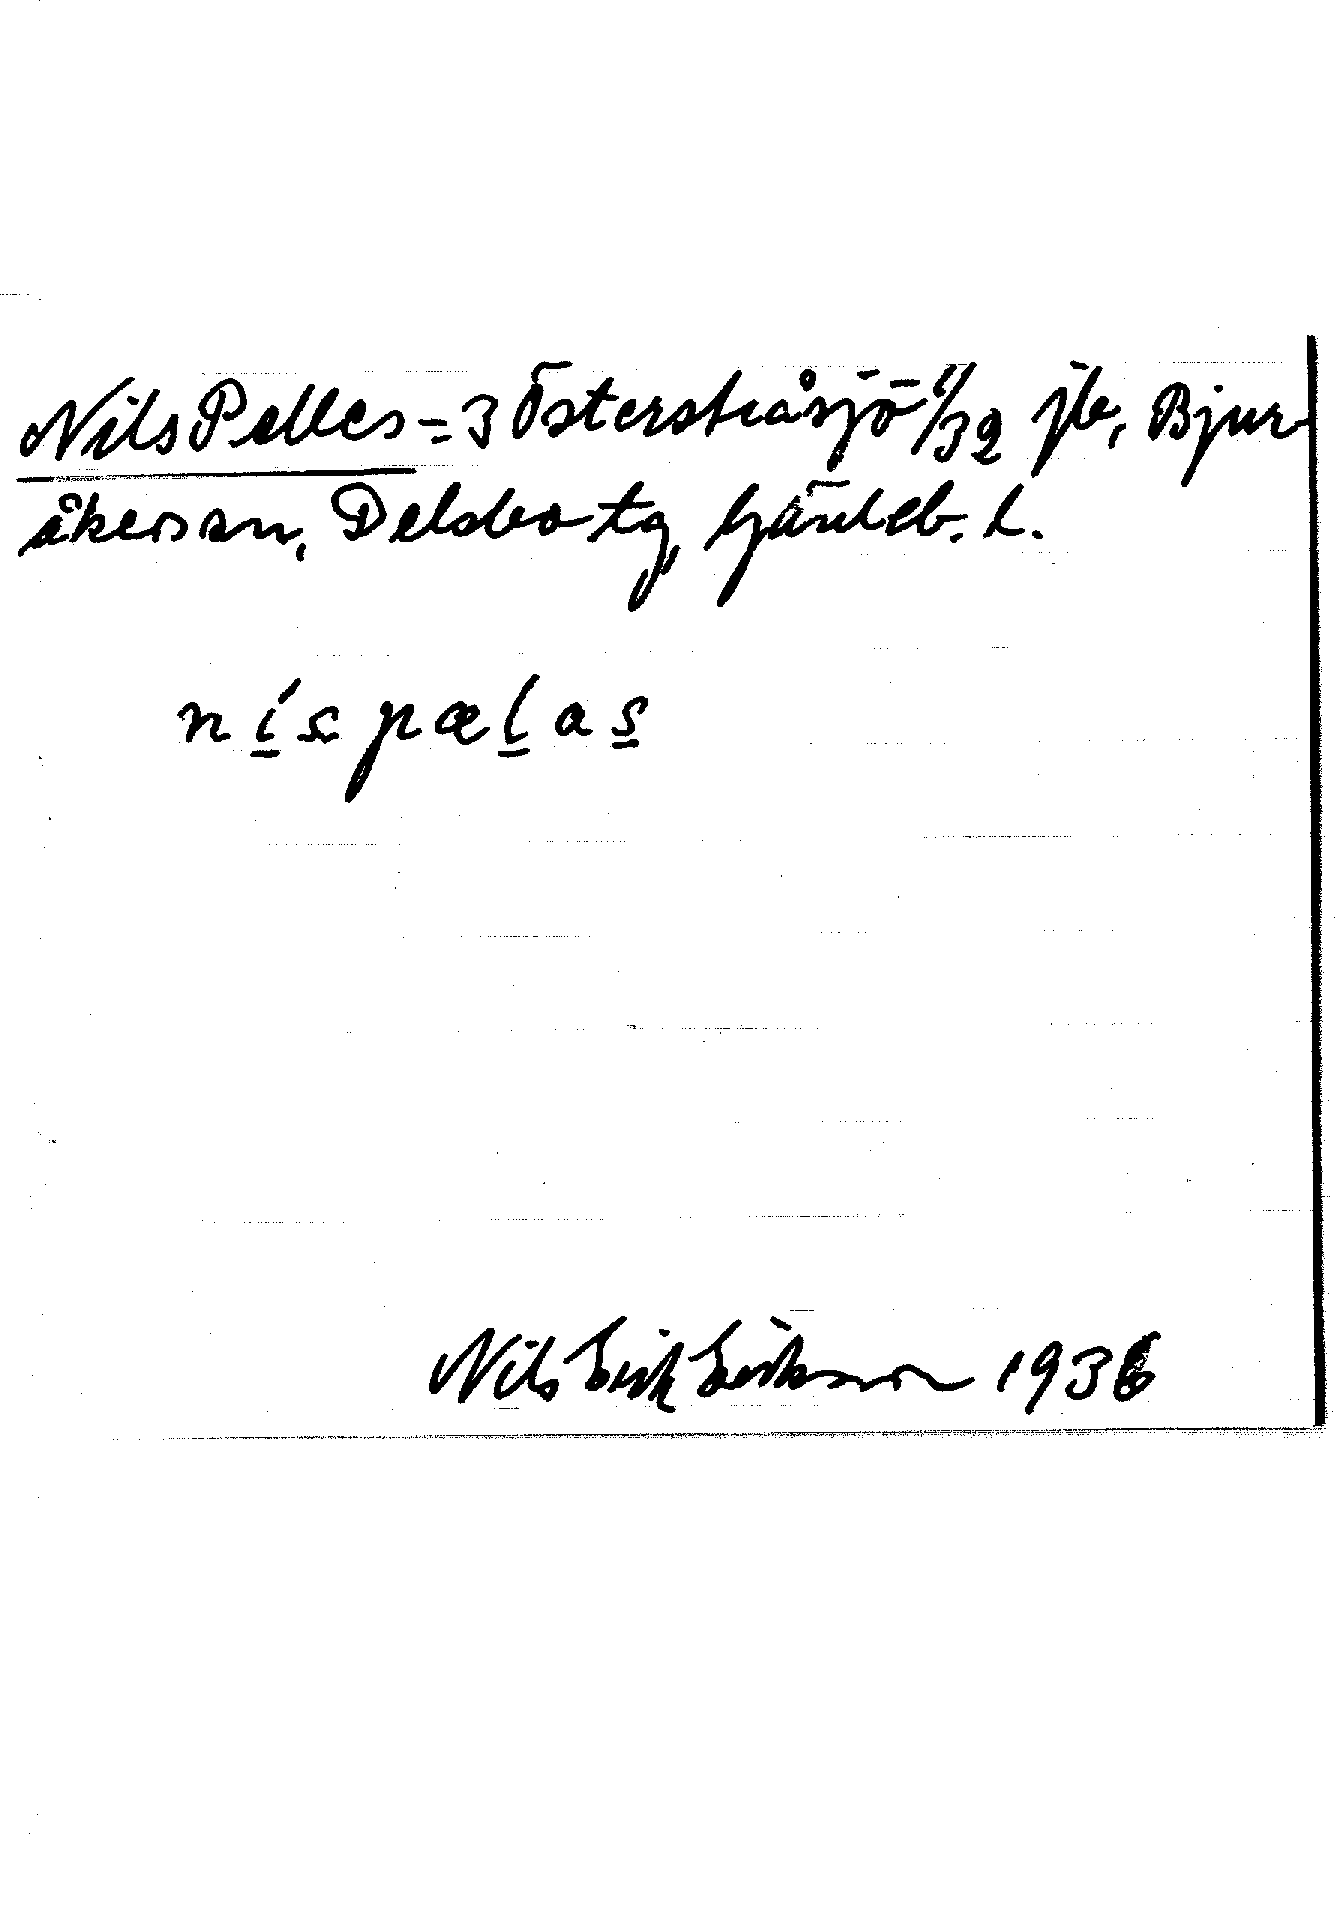 Nils Pelles = 3 Österstråsjö 11/32 jb, Bjur-
åkers sn, Delsbo tg, Gävleb. L.
níspælas
Nils Erik Eriksson 1936